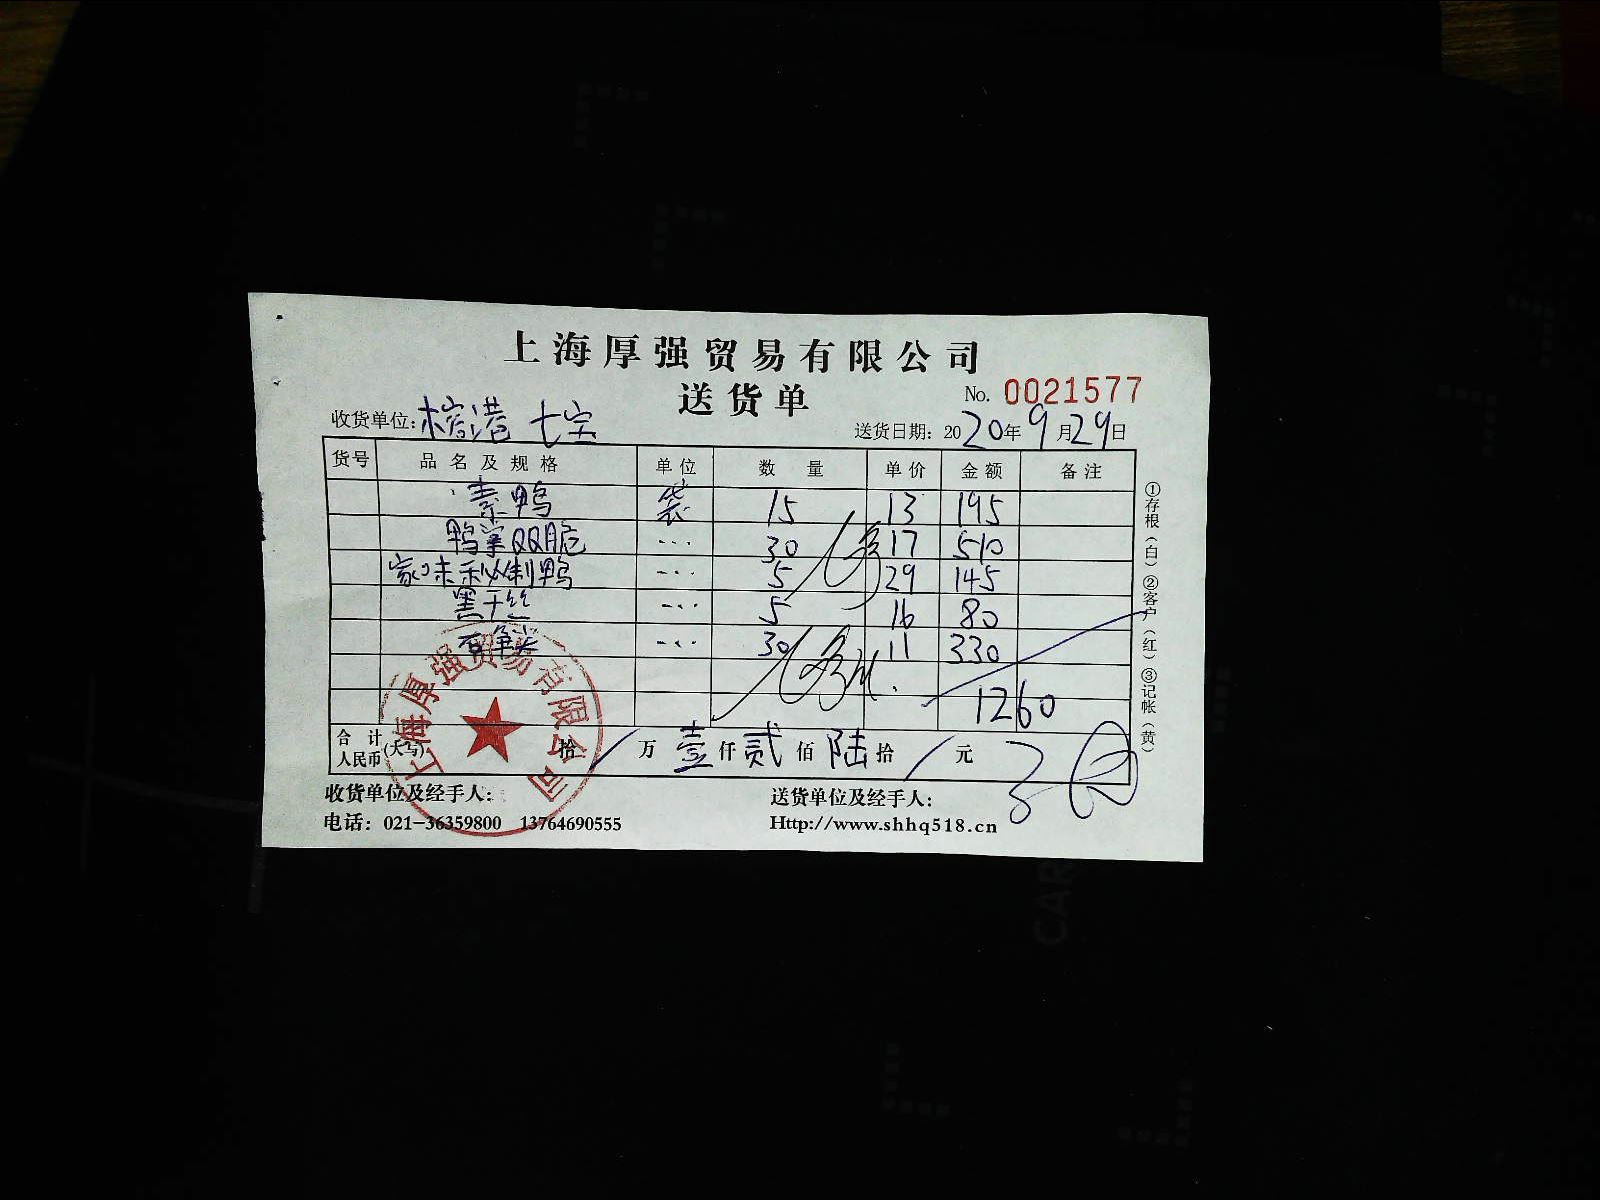 上海厚强贸易有限公司
送货单
No. 0021577
收货单位: 榕港 七宝
送货日期: 2020年9月29日
货号 品名及规格 单位 数量 单价 金额 备注
素鸭 袋 15 13 195
鸭掌QQ脆 ---- 30 17 510
家味秘制鸭 ---- 5 29 145
黑干丝 ---- 5 16 80
---- 30 11 330
1260
合计人民币(大写) 拾 / 万 壹 仟 贰 佰 陆 拾 / 元
收货单位及经手人:
送货单位及经手人:
电话: 021-36359800 13764690555
Http://www.shhq518.cn
①存根(白) ②客户(红) ③记帐(黄)
上海厚强贸易有限公司